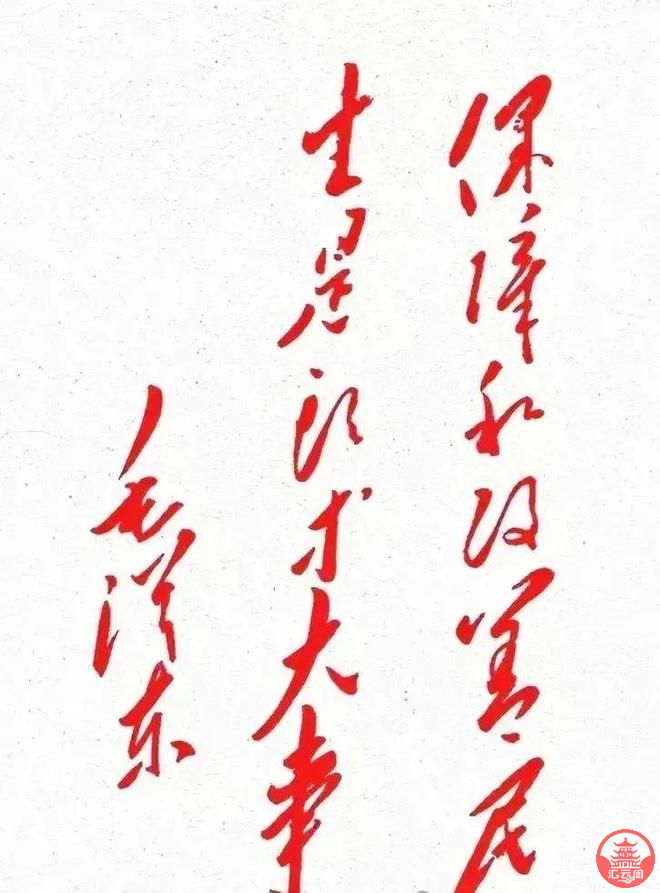 保障和改善民
生是头等大事
毛泽东
汇云阁